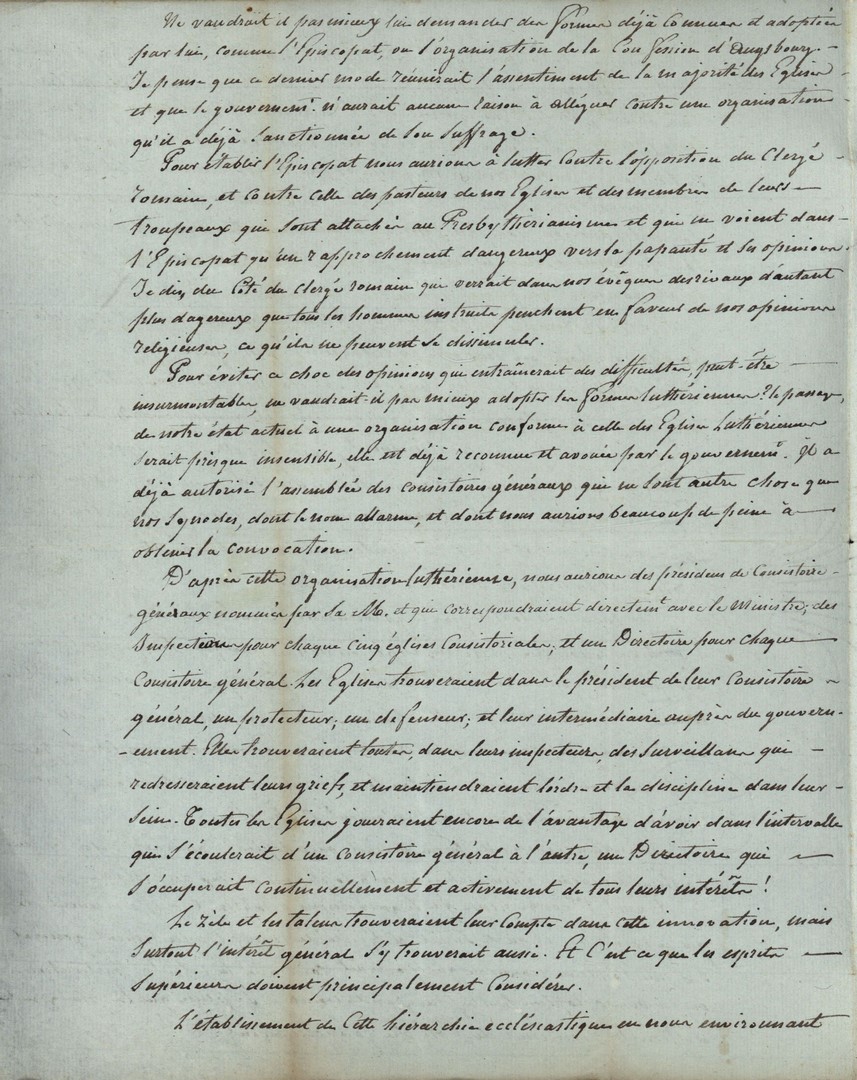 Ne vaudrait il pas mieux lui demander des formes déjà connues et adoptées
par lui, comme l'Episcopat, ou l'organisation de la Confession d'Augsbourg. -
Je pense que ce dernier mode réunirait l'assentiment de la majorité des Eglises -
et que le gouvernemt. n'aurait aucune raison à alléguer contre une organisation -
qu'il a déjà sanctionnée de son suffrage.
Pour établir l'Episcopat nous aurions à lutter contre l'opposition du Clergé -
romain, et contre celle des pasteurs de nos Eglises et des membres de leurs -
troupeaux qui sont attachés au Presbythérianisme et qui ne voient dans -
l'Episcopat qu'un rapprochement dangereux vers la papauté et ses opinions.
Je dis, du Côté du Clergé romain qui verrait dans nos évêques des rivaux d'autant
plus dagereux que tous les hommes instruits penchent en faveur de nos opinions
religieuses, ce qu'ils ne peuvent se dissimuler.
Pour éviter ce choc des opinions qui entraînerait des difficultés, peut-être -
insurmontables, ne vaudrait-il pas mieux adopter les formes luthériennes? le passage,
de notre état actuel à une organisation conforme à celle des Eglises Luthériennes
serait présque insensible, elle est déjà reconnue et avouée par le gouvernemt. Il a
déjà autorisé l'assemblée des consistoires généraux qui ne sont autre chose que
nos Synodes, dont le nom allarme, et dont nous aurions beaucoup de peine à -
obtenir la convocation.
D'après cette organisation luthérienne, nous aurions des présidens de Consistoires -
généraux nommés par Sa M. et qui correspondraient directemt. avec le Ministre; des
Inspecteurs pour chaque cinq églises Consistoriales; et un Directoire pour chaque -
Consistoire général. Les Eglises trouveraient dans le président de leur Consistoire -
général, un protecteur; un défenseur; et leur intermédiaire auprès du gouvern-
-ement. Elles trouveraient toutes, dans leurs inspecteurs, des Surveillans qui -
redresseraient leurs griefs, et maintiendraient l'ordre et la discipline dans leur -
sein. Toutes les Eglises joueraient encore de l'avantage d'avoir dans l'intervalle
qui s'écoulerait d'un consistoire général à l'autre, un Directoire qui -
s'ócuperait continuellement et activement de tous leurs intérêts!
Le Zèle et les talens trouveraient leur compte dans cette innovation, mais
surtout l'intérêt général s'y trouverait aussi. Et c'est ce que les esprits -
supérieurs doivent principalement considérer.
L'établissement de cette hiérarchie ecclésiastique en nous environnant